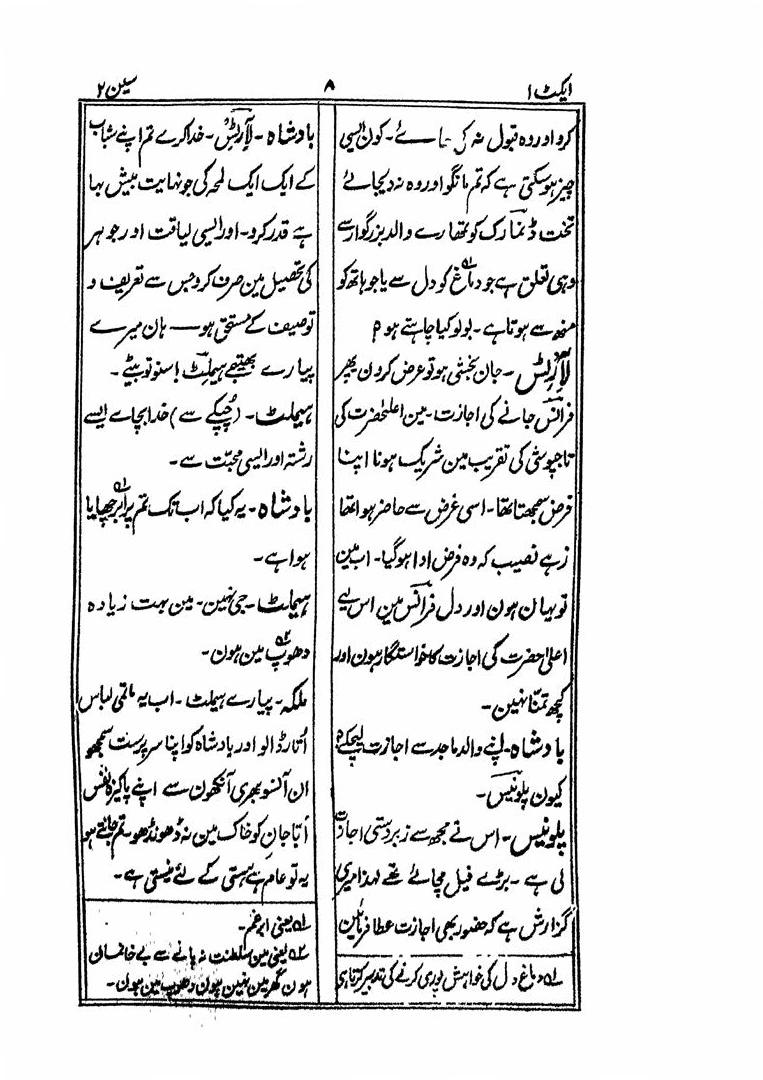 ایکٹ ۱
۸
سین ۲
کرو اور وہ قبول نہ کی جائے۔ کون ایسی
چیز ہو سکتی ہے کہ تم مانگو اور وہ نہ دیجائے
تخت ڈنمارک کو تمھارے والد بزرگوار سے
وہی تعلق ہے جو دماغ۱ کو دل سے یا جو ہاتھ کو
منھ سے ہوتا ہے۔ بولو کیا چاہتے ہو؟
لآرٹس۔ جان بخشی ہو تو عرض کرون پھر
فرانس جانے کی اجازت۔ مین اعلحضرت کی
تاجپوشی کی تقریب مین شریک ہونا اپنا
فرض سمجھتا تھا۔ اسی غرض سے حاضر ہوا تھا
زہے نصیب کہ وہ فرض ادا ہو گیا۔ اب مین
تو یہان ہون اور دل فرانس مین اس لیے
اعلیٰ حضرت کی اجازت کا خواستگار ہون اور
کچھ تمنّا نہین۔
بادشاہ۔ اپنے والد ماجد سے اجازت لیچکے؟
کیون پلونیس۔
پلونیس۔ اس نے مجھ سے زبردستی اجازت
لی ہے۔ بڑے فیل مچائے تھے لہذا میری
گزارش ہے کہ حضور بھی اجازت عطا فرمائین
۱؎ دماغ دل کی خواہش پوری کرنے کی تدبیر کرتا ہی
بادشاہ۔ لآرٹس۔ خدا کرے تم اپنے شباب
کے ایک ایک لمحہ کی جو نہایت بیش بہا
ہے قدر کرو۔ اور ایسی لیاقت اور جوہر
کی تحصیل مین صرف کرو جس سے تعریف و
توصیف کے مستحق ہو — ہان میرے
پیارے بھتیجے ہیملٹ! سنو تو بیٹے۔
ہیملٹ۔ (چپکے سے) خدا بچاے ایسے
رشتہ اور ایسی محبت سے۔
بادشاہ۔ یہ کیا کہ اب تک تم پر ابر۱ چھایا
ہوا ہے۔
ہیملٹ۔ جی نہین۔ مین بہت زیادہ
دھوپ۲ مین ہون۔
ملکہ۔ پیارے ہیملٹ۔ اب یہ ماتمی لباس
اُتار ڈالو اور بادشاہ کو اپنا سرپرست سمجھو
ان آنسو بھری آنکھون سے اپنے پاکیزہ نفس
اَبّا جان کو خاک مین نہ ڈھونڈھو۔ تم جانتے ہو
یہ تو عام ہے ہستی کے لئے نیستی ہے۔
۱؎ یعنی ابر غم۔
۲؎ یعنی مین سلطنت نہ پانے سے بے خانمان
ہون گھر مین نہین ہون دھوپ مین ہون۔